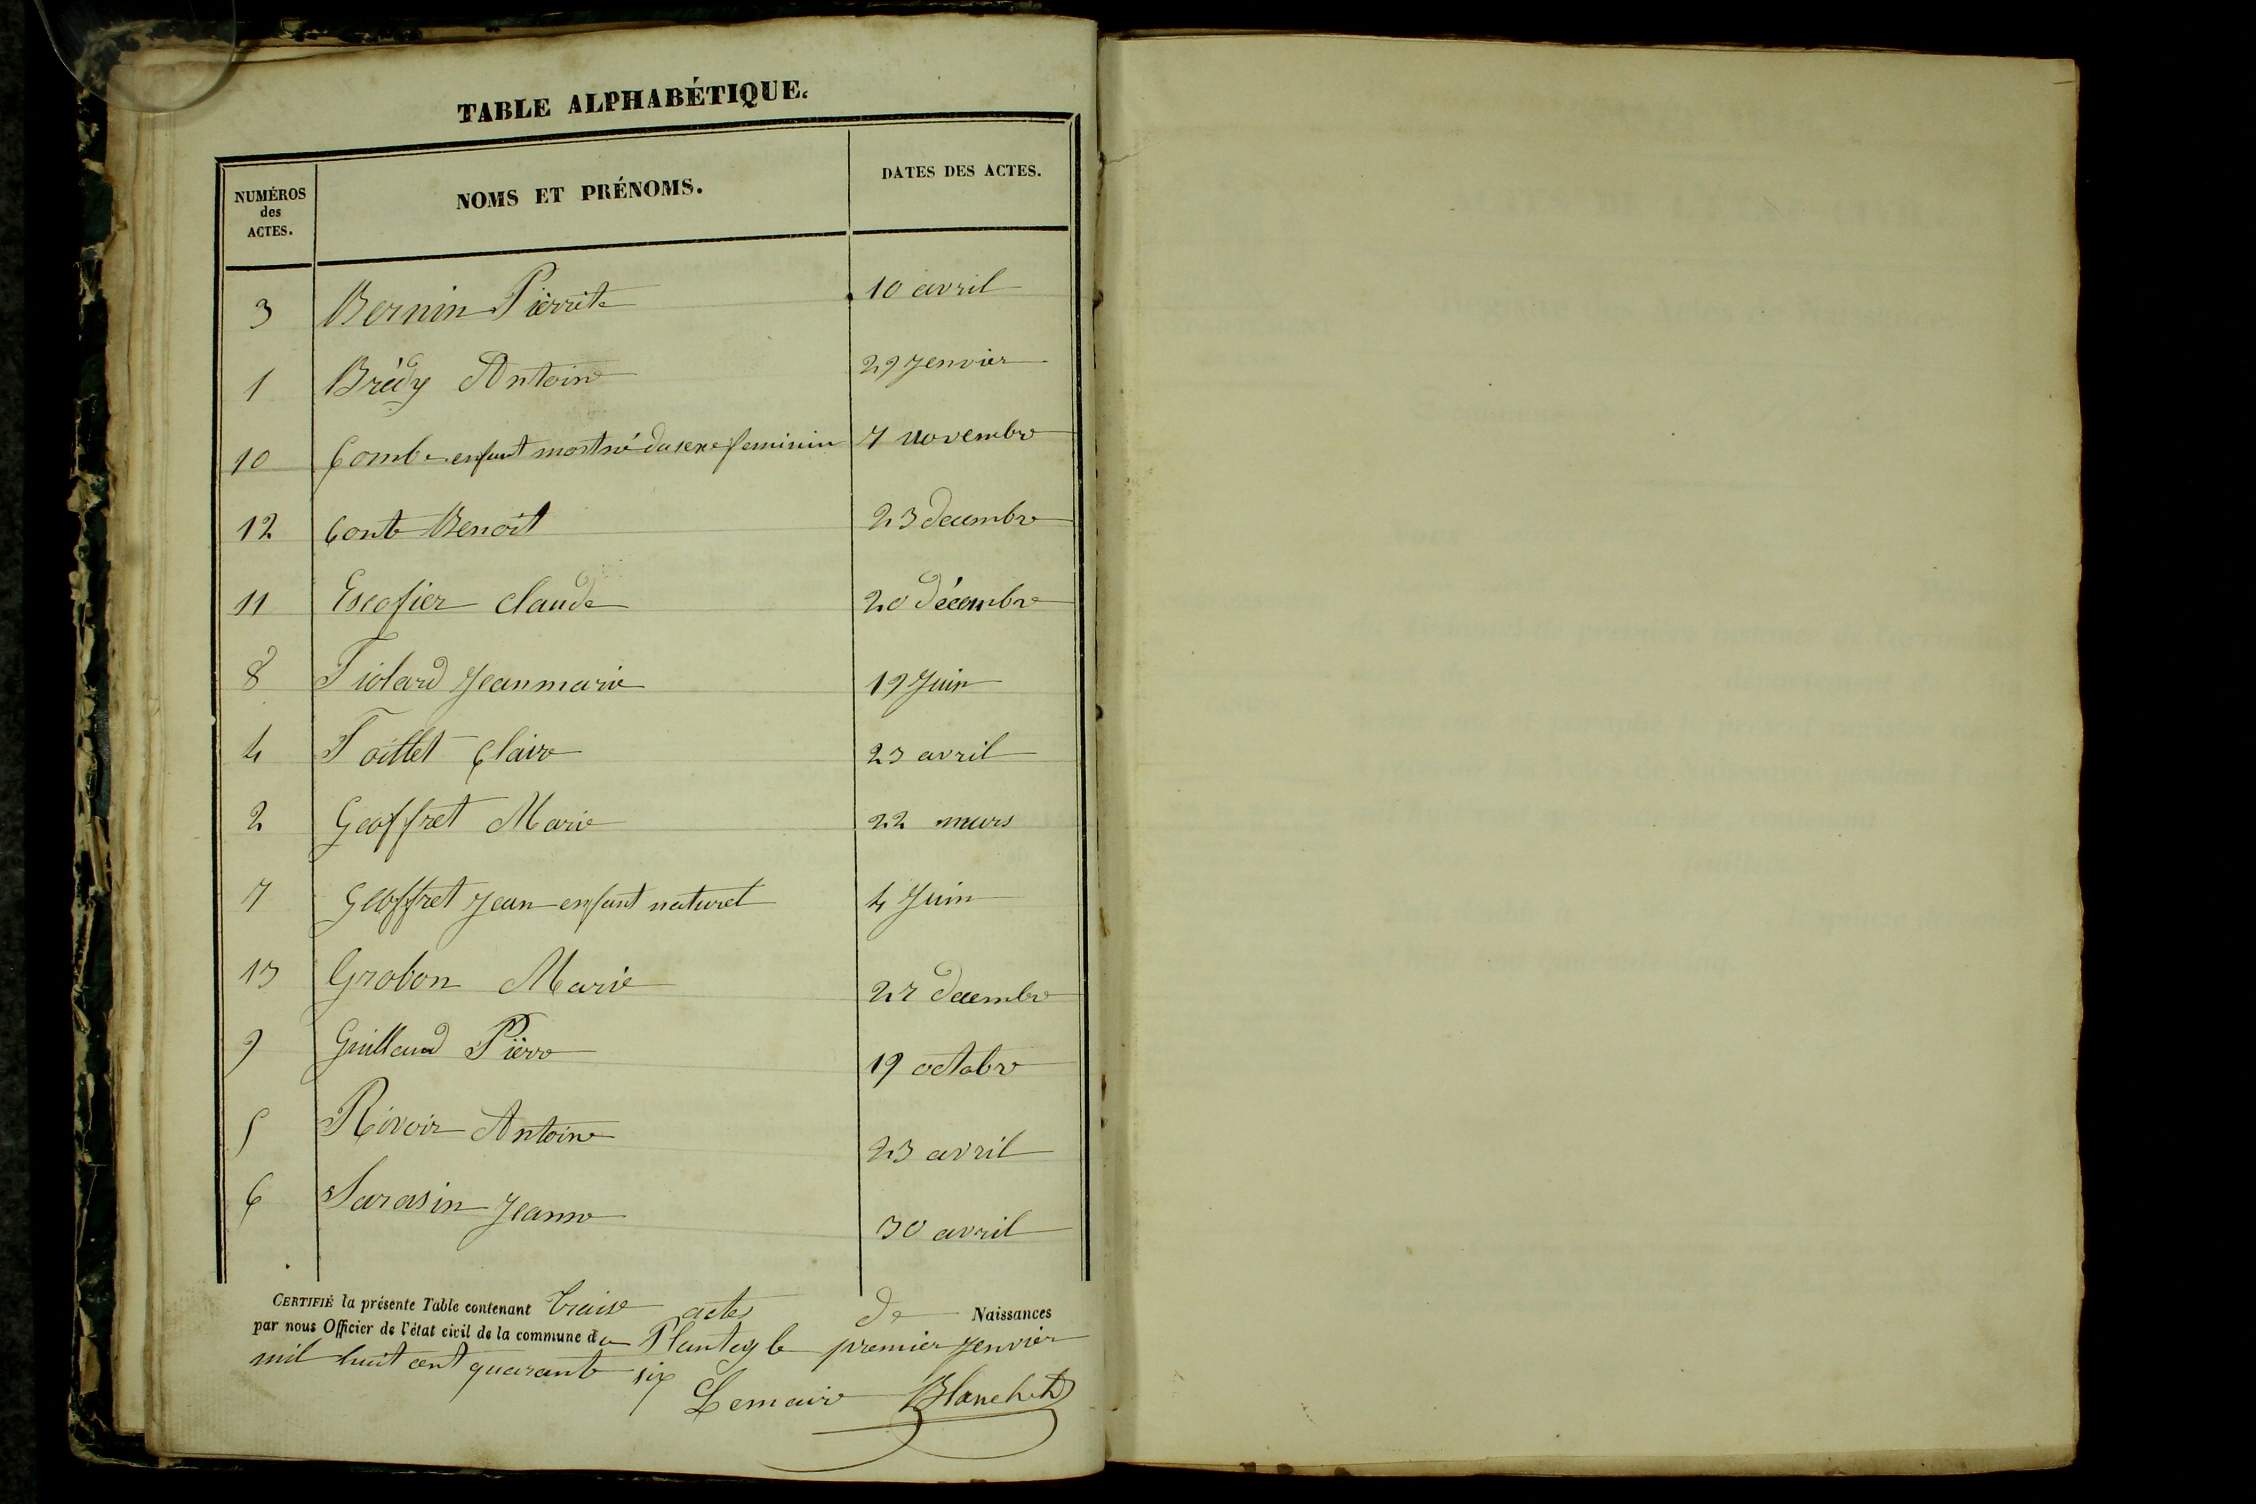 TABLE ALPHABÉTIQUE.
NUMÉROS des ACTES. NOMS ET PRÉNOMS. DATES DES ACTES.
3 Bernin Pierrete 10 avril
1 Brédy Antoine 29 Jenvier
10 Combe enfant mort né du sexe feminin 7 novembre
12 Conte Benoit 23 decembre
11 Escofier Claude 20 décembre
8 Fiolard Jeanmarie 19 Juin
4 Foillet Claire 23 avril
2 Geoffret Marie 22 mars
7 Geoffret Jean enfant naturel 4 Juin
13 Grobon Marie 27 decembre
9 Guillaud Pierre 19 octobre
5 Rivoir Antoine 23 avril
6 Sarasin Jeanne 30 avril
CERTIFIÉ la présente Table contenant traise actes de Naissances
par nous Officier de l'état civil de la commune du Plantey le premier Jenvier
mil huit cent quarante six
Le maire Blanchet